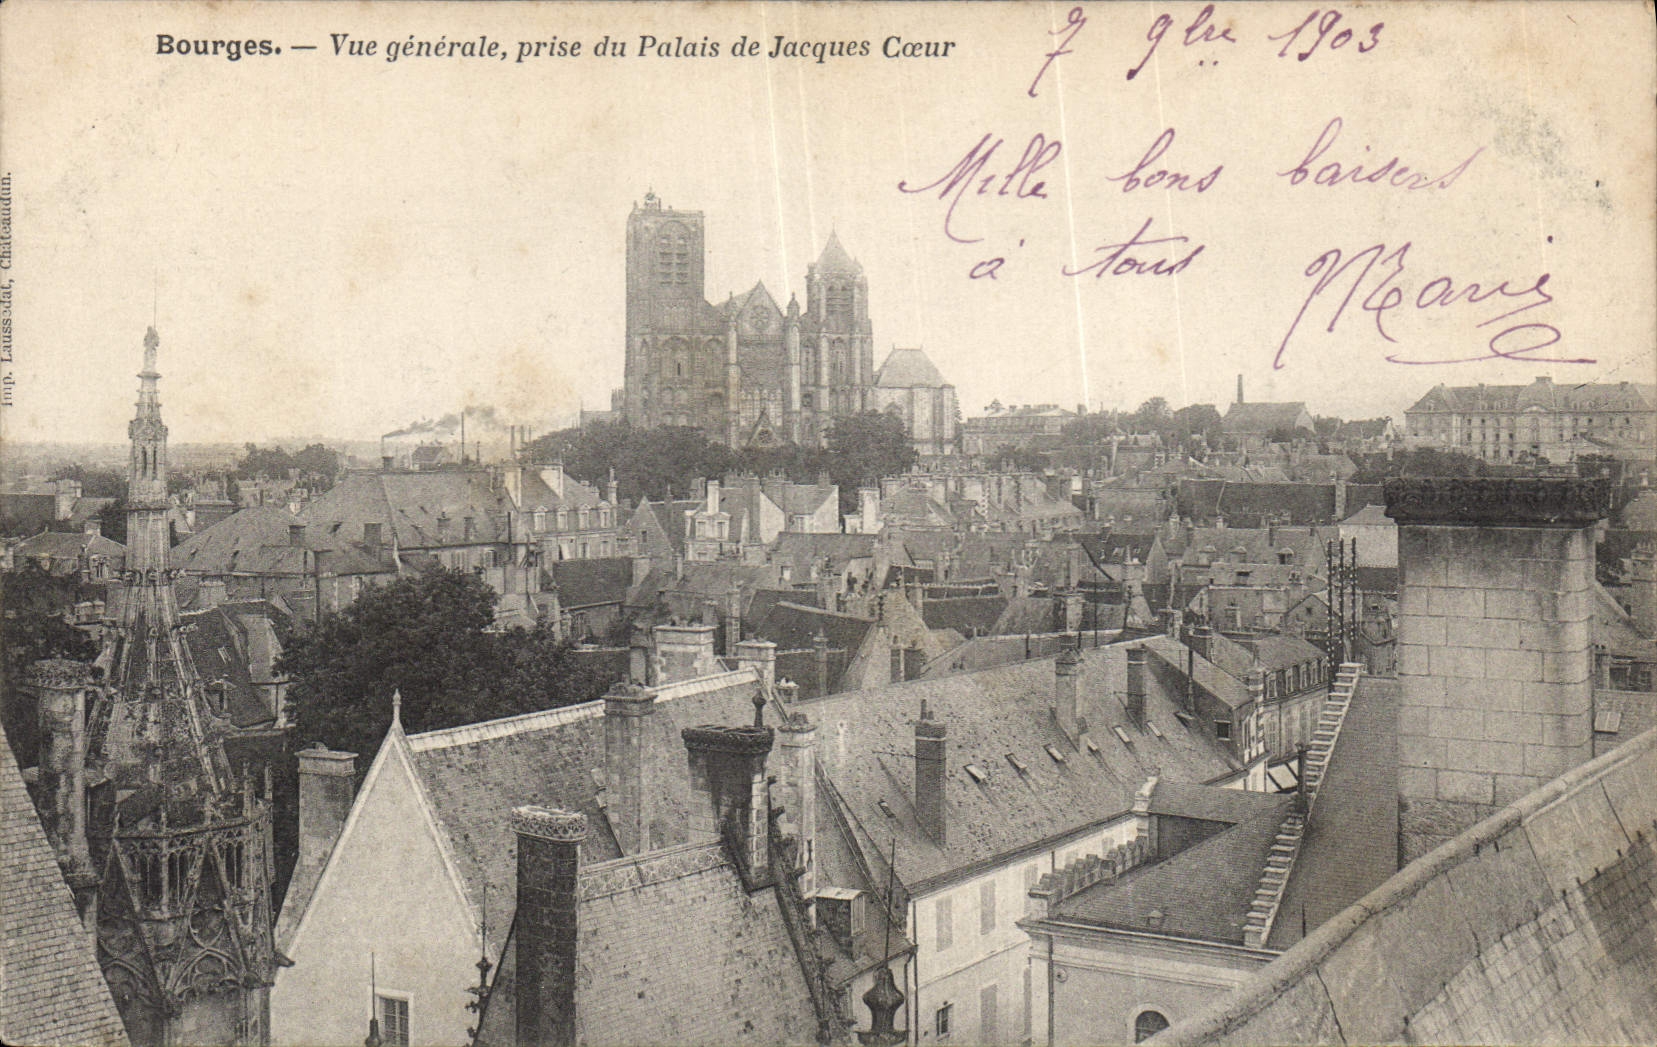 Bourges. — Vue générale, prise du Palais de Jacques Cœur
7 9bre 1903
Mille bons baisers
à tous Marie
Imp. Laussedat, Châteaudun.